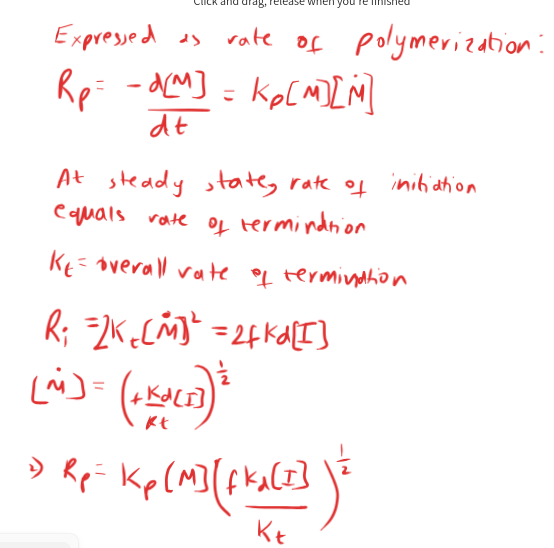 Click and drag, release when you're finished
Expressed as rate of polymerization:
Rp = - d[M]/dt = Kp[M][Ṁ]
At steady state, rate of initiation
equals rate of termination
Kt = overall rate of termination
Ri = 2Kt[Ṁ]² = 2fKd[I]
[Ṁ] = (f Kd[I]/Kt)^½
⇒ Rp = Kp[M](f Kd[I]/Kt)^½